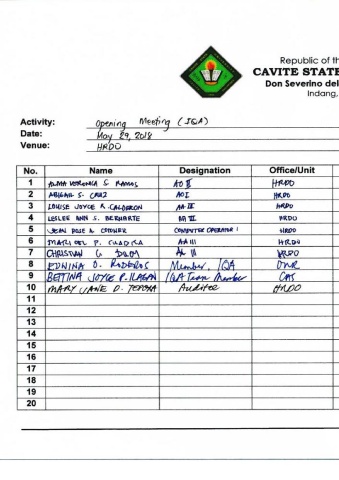 Republic of th
CAVITE STATE
Don Severino del
Indang,
Activity: Opening Meeting (IQA)
Date: May 29, 2018
Venue: HRDO
No. Name Designation Office/Unit
1 ALMA VERONICA S. RAMOS AO II HRDO
2 ABIGAIL S. CRUZ AO I HRDO
3 LOUISE JOYCE R. CALDERON AA III HRDO
4 LESLEE ANN S. BERNARTE AA III HRDO
5 JEAN ROSE A. COMPUTER OPERATOR I HRDO
6 MARICEL P. CUADRA AA III HRDO
7 CHRISTIAN G. AA III HRDO
8 EDNINA O. RODEROS Member, IQA
9 BETTINA JOYCE P. ILAGAN IQA Team Member CAS
10 MARY JANE D. TEPORA Auditee HRDO
11
12
13
14
15
16
17
18
19
20